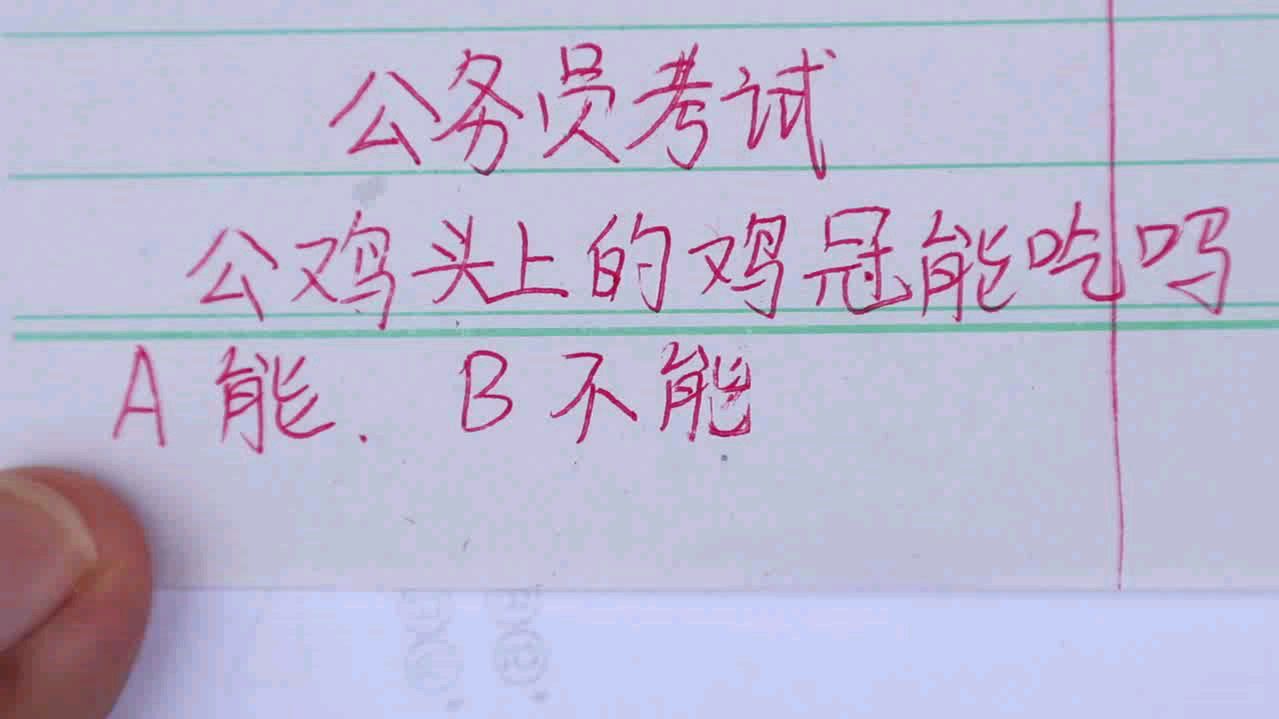 公务员考试
公鸡头上的鸡冠能吃吗
A 能. B 不能